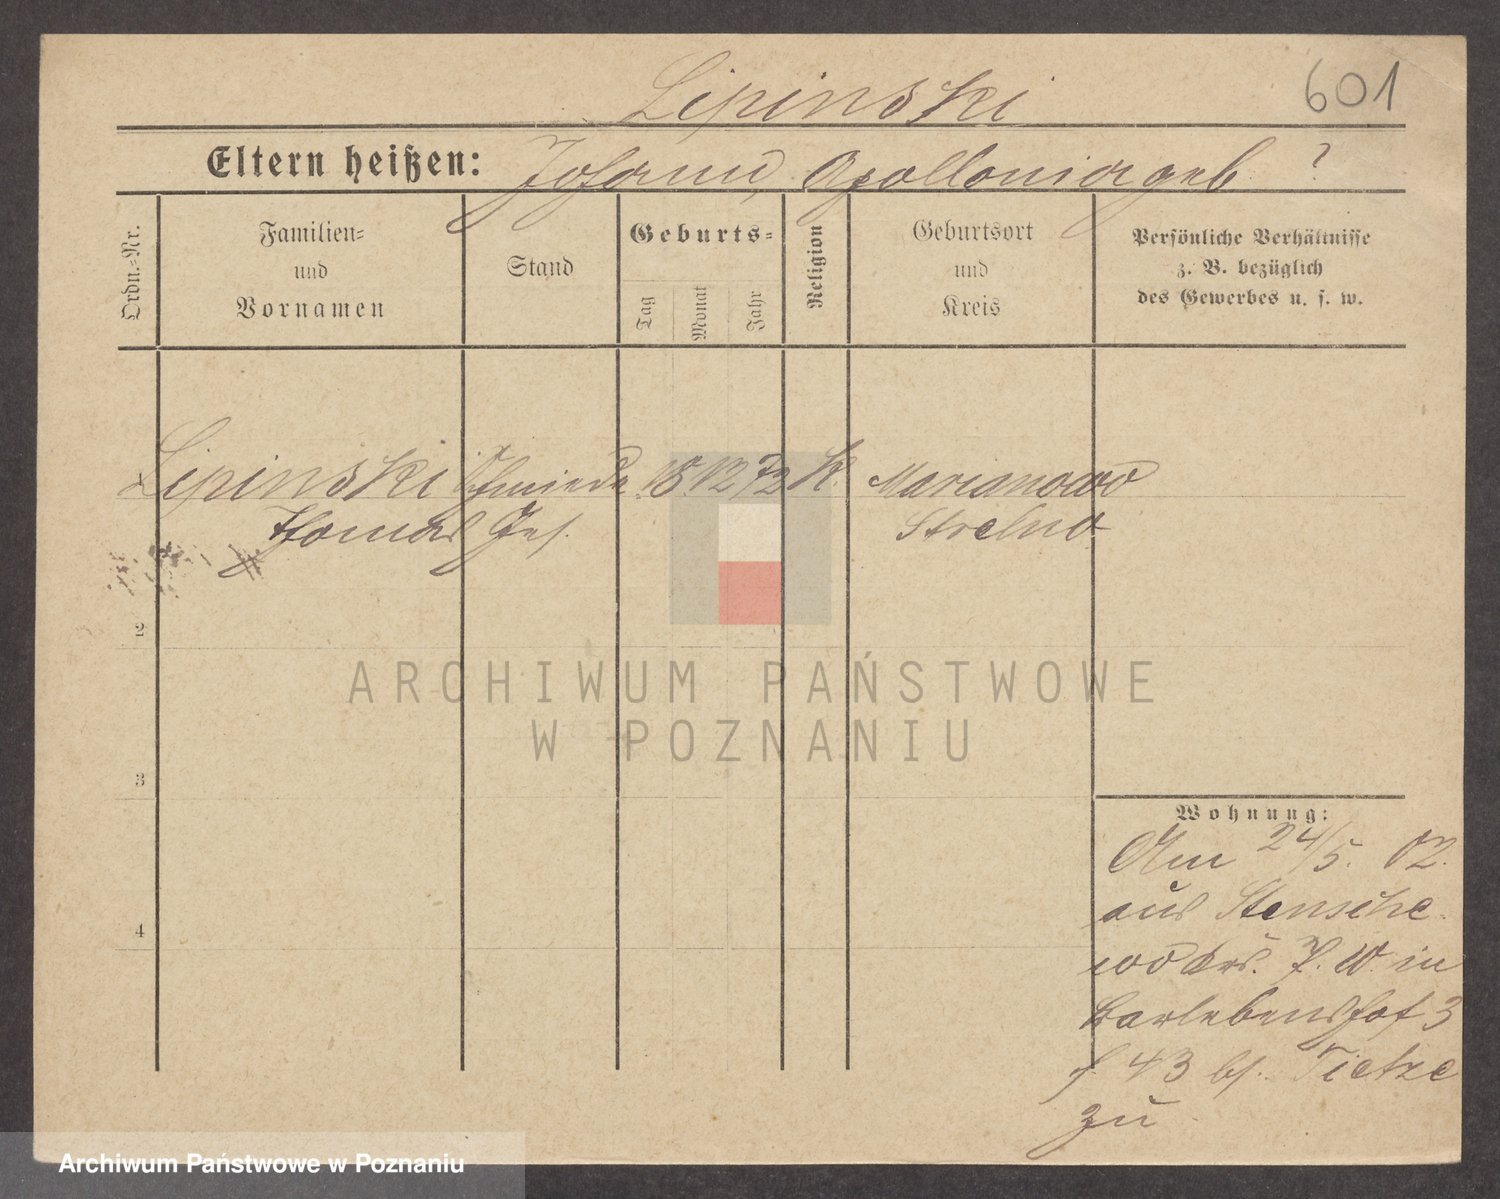 601
Lipinski
Eltern heißen: Johann, Apollonia geb ?
Ordn.-Nr.
Familien-
und
Vornamen
Stand
Geburts-
Tag
Monat
Jahr
Religion
Geburtsort
und
Kreis
Persönliche Verhältnisse
z. B. bezüglich
des Gewerbes u. s. w.
1 Lipinski Schmiede 18 12 72 K. Marianowo
Thomas Ges. Strelno
2
3
4
Wohnung:
Am 24/5. 02.
aus Stensche-
wo Krs. P. W. in
3
43 bei Tietze
zu
ARCHIWUM PAŃSTWOWE
W POZNANIU
Archiwum Państwowe w Poznaniu